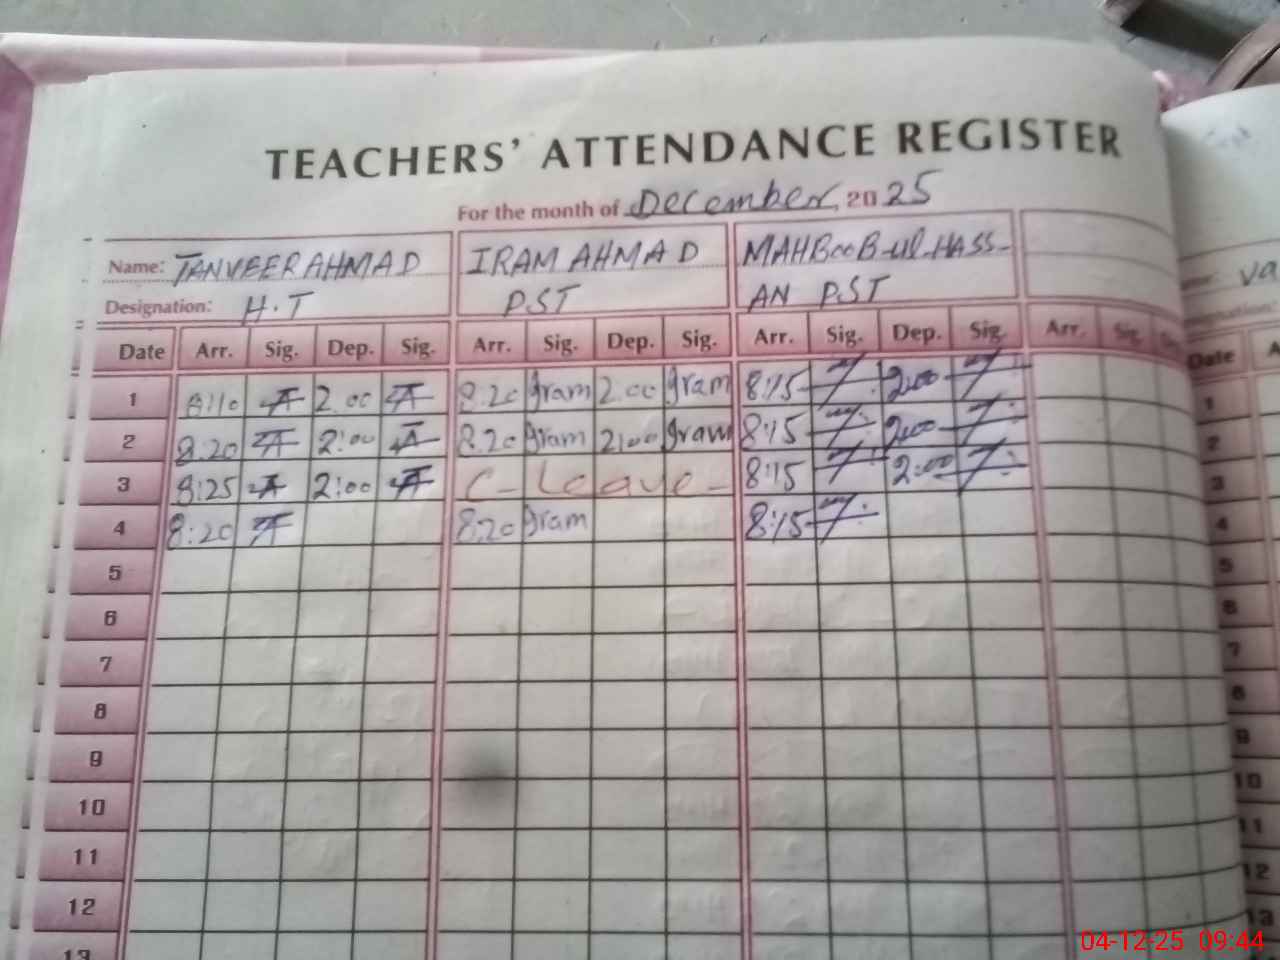 TEACHERS' ATTENDANCE REGISTER
For the month of December, 2025
Name: TANVEER AHMAD IRAM AHMAD MAHBooB-ul-HASS-
Designation: H.T PST AN PST
Date Arr. Sig. Dep. Sig. Arr. Sig. Dep. Sig. Arr. Sig. Dep. Sig. Arr. Sig.
1 8:10 2.00 8.20 Iram 2.00 Iram 8:15 2:00
2 8.20 2:00 8.20 Iram 2:00 Iram 8:15 2:00
3 8:25 2:00 C- Leave- 8:15 2:00
4 8:20 8:20 Iram 8:15
5
6
7
8
9
10
11
12
13
Va
Date
1
2
3
4
5
6
7
8
9
10
11
12
13
04-12-25 09:44